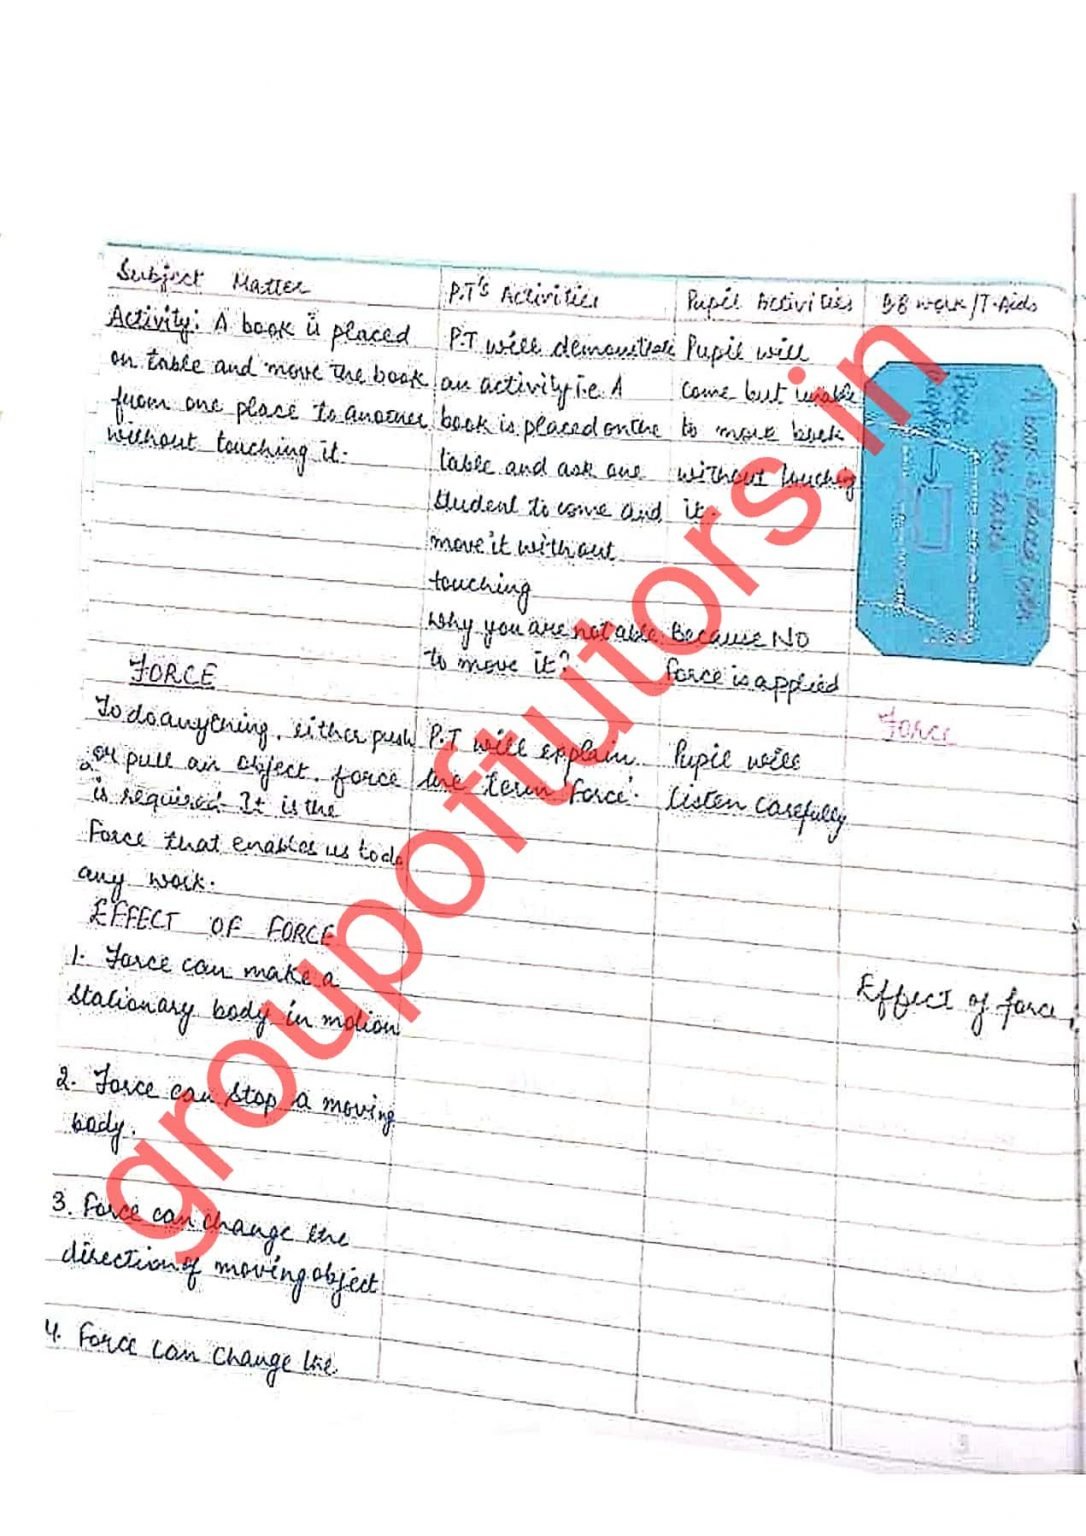 Subject Matter
P.T's Activities
Pupil Activities
BB work/T-Aids
Activity: A book is placed
on table and move the book
from one place to another
without touching it.
P.T will demonstrate
an activity i.e. A
book is placed on the
table and ask one
student to come and
move it without
touching
Why you are not able
to move it?
Pupil will
come but unable
to move book
without touching
it.
Because No
force is applied
A book is placed over
the table
Force
FORCE
To do anything, either push
or pull an object. force
is required. It is the
Force that enables us to do
any work.
P.T will explain
the term Force.
Pupil will
listen carefully
Force
EFFECT OF FORCE
1. Force can make a
stationary body in motion
2. Force can stop a moving
body.
3. Force can change the
direction of moving object
4. Force can change the
Effect of force
groupoftutors.in